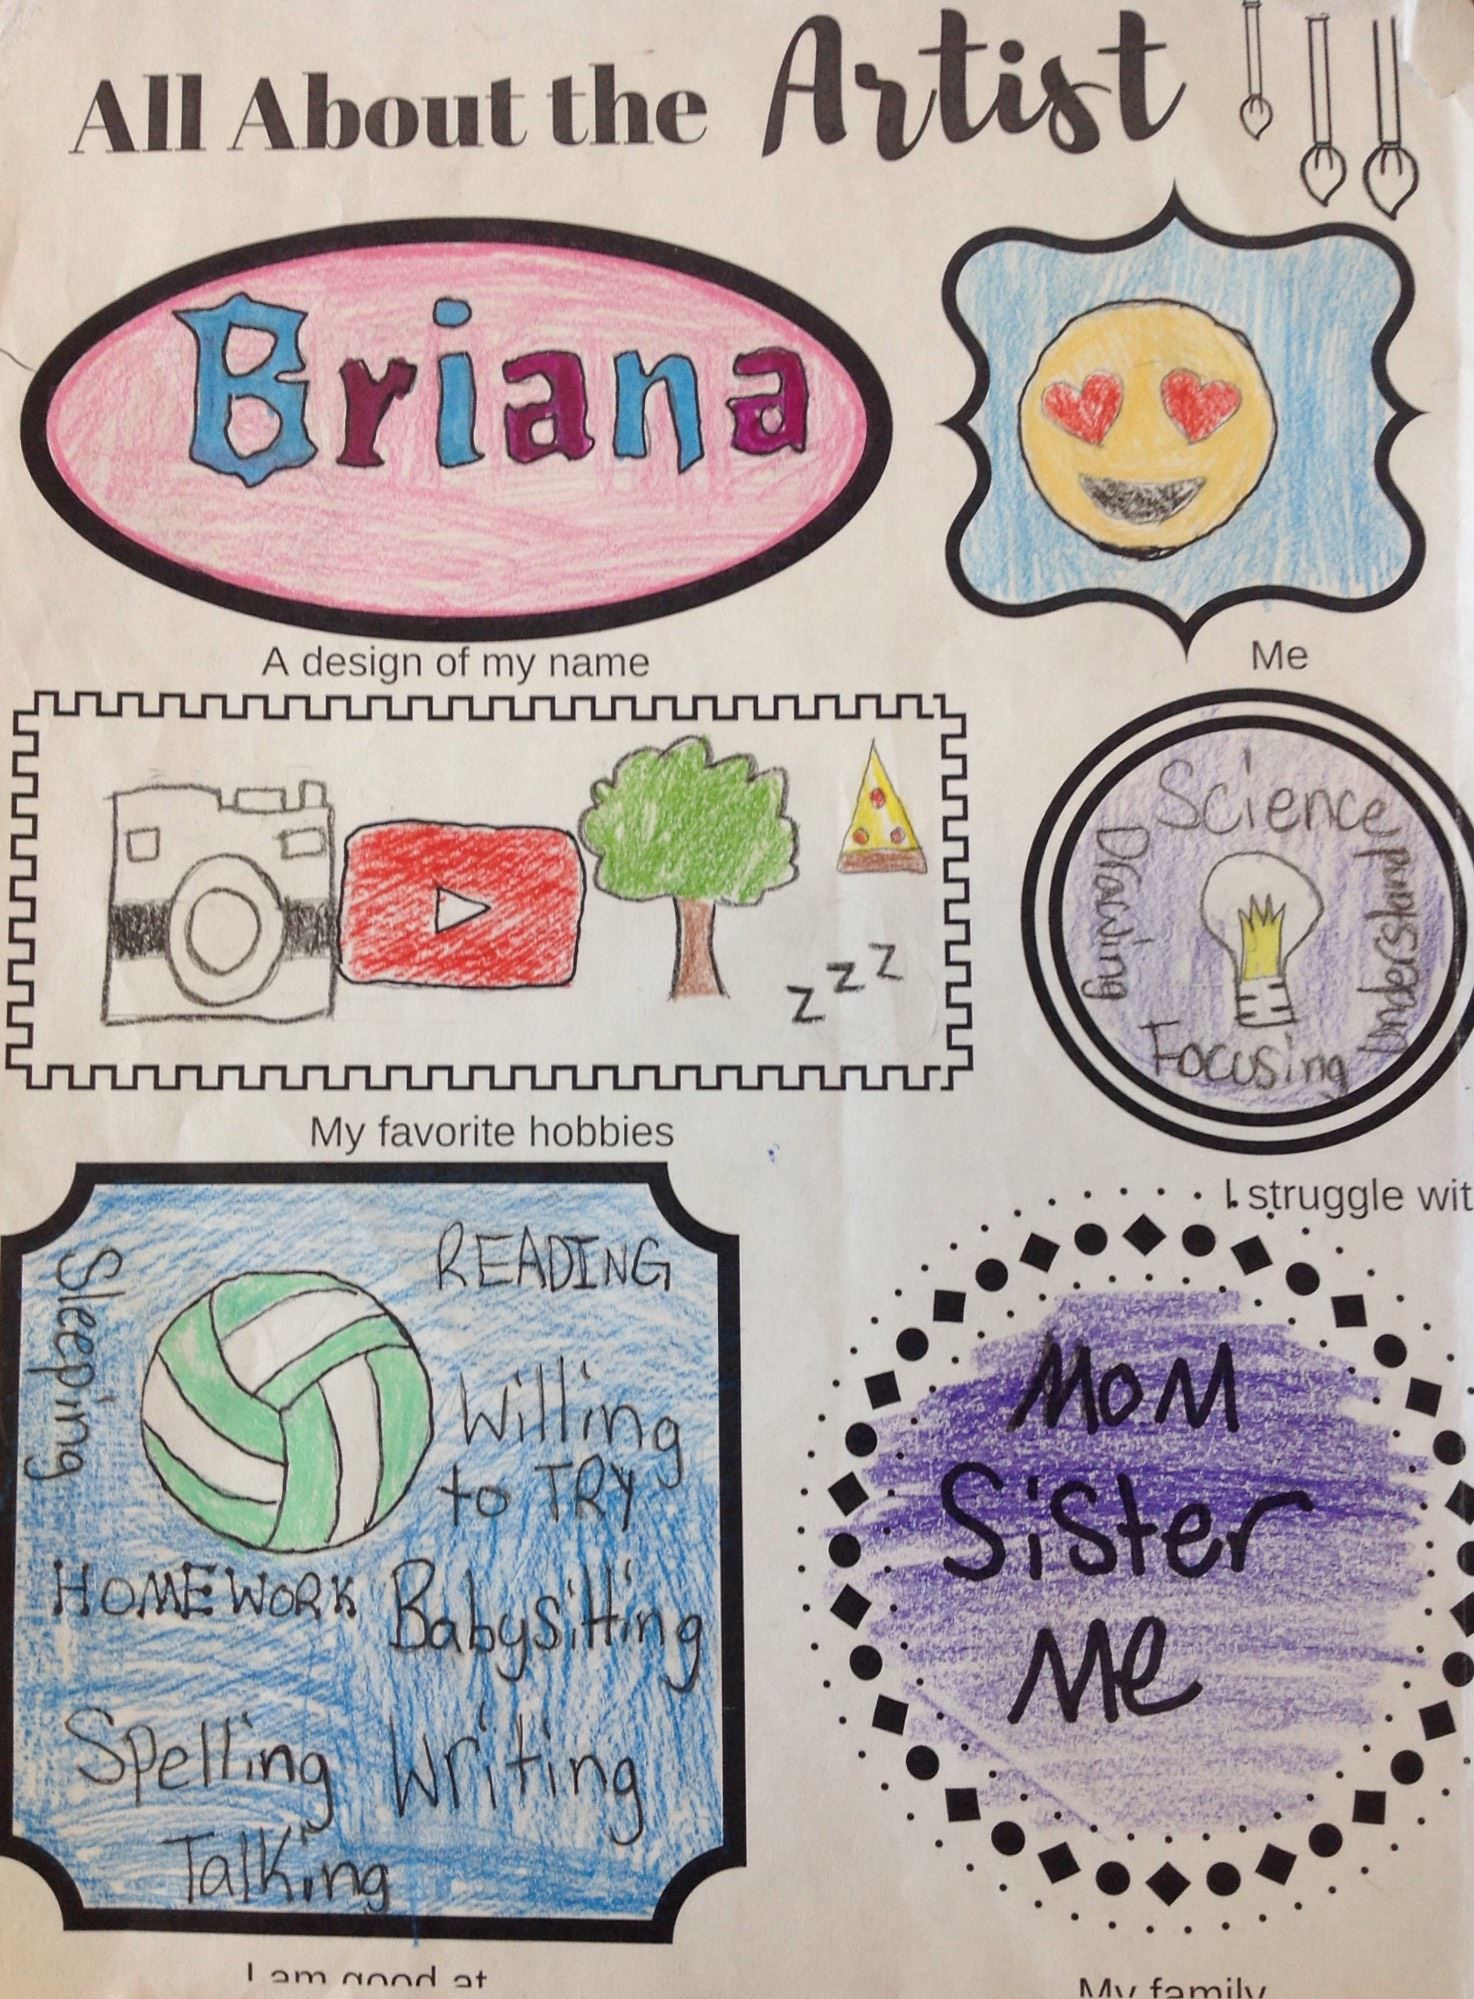 All About the Artist
Briana
A design of my name
Me
z z z
My favorite hobbies
Science
Drawing
Understand
Focusing
I struggle wit
Sleeping
READING
Willing
to TRY
HOMEWORK
Babysitting
Spelling
Writing
Talking
I am good at
MOM
Sister
Me
My family